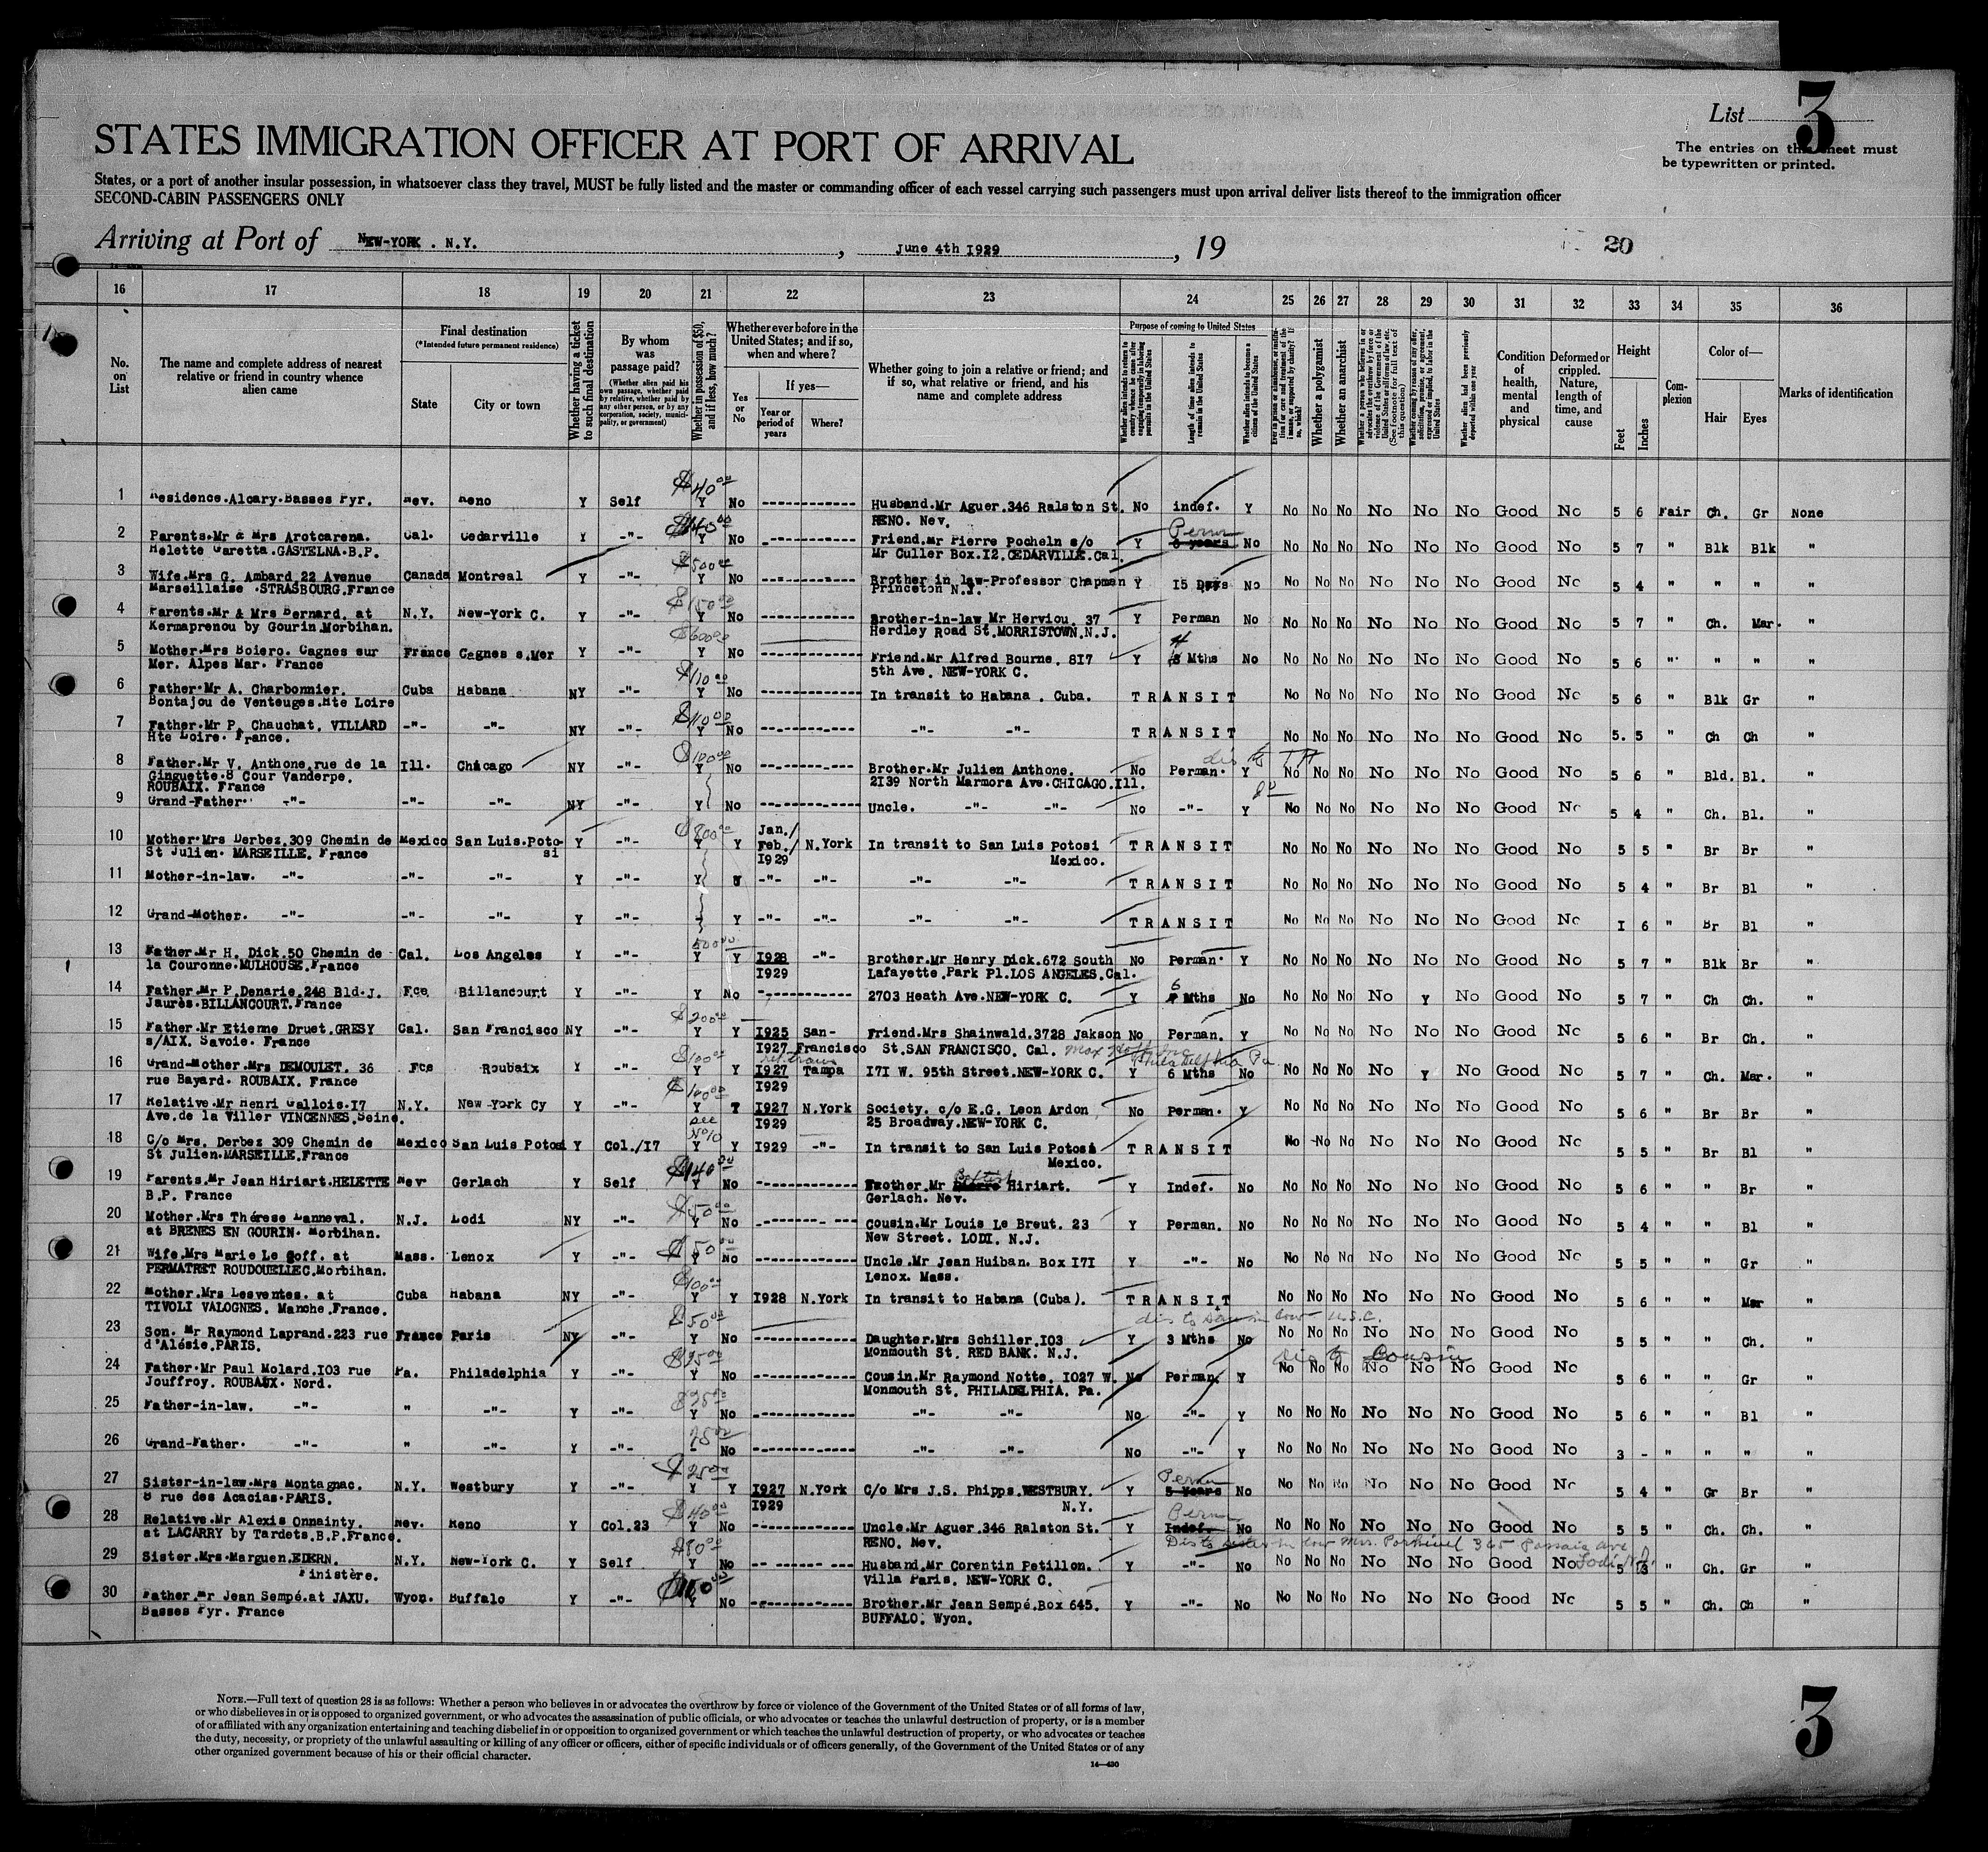 List 3
The entries on this sheet must
be typewritten or printed.
STATES IMMIGRATION OFFICER AT PORT OF ARRIVAL
States, or a port of another insular possession, in whatsoever class they travel, MUST be fully listed and the master or commanding officer of each vessel carrying such passengers must upon arrival deliver lists thereof to the immigration officer
SECOND-CABIN PASSENGERS ONLY
Arriving at Port of NEW-YORK . N.Y. , June 4th I929 , 19 20
16 17 18 19 20 21 22 23 24 25 26 27 28 29 30 31 32 33 34 35 36
No. on List
The name and complete address of nearest relative or friend in country whence alien came
Final destination
(*Intended future permanent residence)
State City or town
Whether having a ticket to such final destination
By whom was passage paid?
(Whether alien paid his own passage, whether paid by relative, whether paid by any other person, or by any corporation, society, municipality, or government)
Whether in possession of $50, and if less, how much?
Whether ever before in the United States; and if so, when and where?
Yes or No
If yes—
Year or period of years Where?
Whether going to join a relative or friend; and if so, what relative or friend, and his name and complete address
Purpose of coming to United States
Length of time alien intends to remain in the United States
Whether alien intends to become a citizen of the United States
Whether a polygamist
Whether an anarchist
Condition of health, mental and physical
Deformed or crippled. Nature, length of time, and cause
Height
Feet Inches
Complexion
Color of—
Hair Eyes
Marks of identification
1 Residence.Alcary.Basses Pyr. Nev. Reno Y Self $40 00 Y No Husband.Mr Aguer.346 Ralston St. No indef. Y No No No No No No Good No 5 6 Fair Ch. Gr None
RENO. Nev.
2 Parents.Mr & Mrs Arotcarena. Cal. Cedarville Y -"- $140 00 Y No Friend.Mr Pierre Pocheln s/o Y Perm No No No No No No No Good No 5 7 " Blk Blk "
Helette Garetta.GASTELNA.B.P. Mr Culler Box.I2.CEDARVILLE.Cal.
3 Wife.Mrs G. Ambard.22 Avenue Canada Montreal Y -"- $500 00 Y No Brother in law-Professor Chapman Y I5 Days No No No No No No No Good No 5 4 " " " "
Marseillaise .STRASBOURG.France Princeton N.J.
4 Parents.Mr & Mrs Bernard. at N.Y. New-York C. Y -"- $150 00 Y No Brother-in-law Mr Herviou. 37 Y Perman No No No No No No No Good No 5 7 " Ch. Mar. "
Kermaprenou by Gourin.Morbihan. Herdley Road St.MORRISTOWN.N.J.
5 Mother.Mrs Boiero. Cagnes sur France Cagnes s.Mer Y -"- $600 00 Y No Friend.Mr Alfred Bourne. 8I7 Y 4 Mths No No No No No No No Good No 5 6 " " " "
Mer. Alpes Mar. France 5th Ave. NEW-YORK C.
6 Father.Mr A. Charbonnier. Cuba Habana NY -"- $110 00 Y No In transit to Habana . Cuba. T R A N S I T No No No No No No Good No 5 6 " Blk Gr "
Bontajou de Venteuges.Hte Loire
7 Father.Mr P. Chauchat. VILLARD -"- -"- NY -"- $110 00 Y No -"- -"- T R A N S I T No No No No No No Good No 5. 5 " Ch Ch "
Hte Loire. France.
8 Father.Mr V. Anthone.rue de la Ill. Chicago NY -"- $100 00 Y No Brother.Mr Julien Anthone. No Perman. Y No No No No No No Good No 5 6 " Bld. Bl. "
Ginguette.8 Cour Vanderpe. 2I39 North Marmora Ave.CHICAGO.Ill.
ROUBAIX. France
9 Grand-Father. -"- -"- -"- NY -"- Y No Uncle. -"- -"- No -"- Y No No No No No No Good No 5 4 " Ch. Bl. "
10 Mother.Mrs Derbez.309 Chemin de Mexico San Luis.Poto- Y -"- $800 00 Y Y Jan./ Feb./ I929 N.York In transit to San Luis Potosi T R A N S I T No No No No No No Good No 5 5 " Br Br "
St Julien. MARSEILLE. France si Mexico.
11 Mother-in-law. -"- -"- -"- Y -"- Y Y -"- -"- -"- -"- T R A N S I T No No No No No No Good No 5 4 " Br Bl "
12 Grand-Mother. -"- -"- -"- Y -"- Y -"- -"- -"- -"- T R A N S I T No No No No No No Good No I 6 " Br Bl "
13 Father.Mr H. Dick.50 Chemin de Cal. Los Angeles Y -"- 500 00 Y Y I928 -"- Brother.Mr Henry Dick.672 South No Perman. Y No No No No No No Good No 5 7 " Blk Br "
la Couronne.MULHOUSE.France I929 Lafayette.Park Pl.LOS ANGELES.Cal.
14 Father.Mr P.Denarie.246 Bld.J. Fce Billancourt Y -"- Y No 2703 Heath Ave.NEW-YORK C. Y 6 Mths No No No No No Y No Good No 5 7 " Ch Ch. "
Jaurès.BILLANCOURT.France
15 Father.Mr Etienne Druet.GRESY Cal. San Francisco NY -"- $200 00 Y Y I925 San- Friend.Mrs Shainwald.3728 Jakson No Perman. Y No No No No No No Good No 5 6 " Br Ch. "
s/AIX. Savoie. France I927 Francisco St.SAN FRANCISCO. Cal.
16 Grand-Mother.Mrs DEMOULET. 36 Fce Roubaix Y -"- $100 00 Y Y I927 Tampa I7I W. 95th Street.NEW-YORK C. Philadelphia Pa Y 6 Mths No No No No No Y No Good No 5 7 " Ch. Mar. "
rue Bayard. ROUBAIX. France I929
17 Relative.Mr Henri Gallois.I7 N.Y. New-York Cy Y -"- $100 00 Y I927 N.York Society. c/o E.G. Leon Ardon No Perman. Y No No No No No No Good No 5 6 " Br Br "
Ave.de la Viller VINCENNES.Seine. I929 25 Broadway.NEW-YORK C.
18 C/o Mrs. Derbez 309 Chemin de Mexico San Luis Potosi Y Col./I7 see No 10 Y Y I929 -"- In transit to San Luis Potosi T R A N S I T No No No No No No Good No 5 5 " Br Bl "
St Julien.MARSEILLE.France Mexico.
19 Parents.Mr Jean Hiriart.HELETTE Nev Gerlach Y Self $140 00 Y No Brother.Mr Hiriart. Y Indef. No No No No No No No Good No 5 6 " " Br "
B.P. France Gerlach. Nev.
20 Mother.Mrs Thérese Lanneval. N.J. Lodi NY -"- $50 00 Y No Cousin.Mr Louis Le Breut. 23 Y Perman. No No No No No No No Good No 5 4 " " Bl "
at BRENES EN GOURIN. Morbihan. New Street. LODI. N.J.
21 Wife.Mrs Marie Le Goff. at Mass. Lenox Y -"- $50 00 Y No Uncle.Mr Jean Huiban. Box I7I Y -"- No No No No No No No Good No 5 5 " " Gr "
PERMATRET ROUDOUELLEC.Morbihan. Lenox. Mass.
22 Mother.Mrs Lesventes. at Cuba Habana NY -"- $100 00 Y Y I928 N.York In transit to Habana (Cuba). T R A N S I T No No No No No No Good No 5 6 " " Mar "
TIVOLI VALOGNES. Manche.France.
23 Son. Mr Raymond Laprand.223 rue France Paris NY -"- $50 00 Y No Daughter.Mrs Schiller.I03 Y 3 Mths No No No No No No No Good No 5 5 " " Ch. "
d'Alésie.PARIS. Monmouth St. RED BANK. N.J.
24 Father.Mr Paul Molard.I03 rue Pa. Philadelphia Y -"- Y No Cousin.Mr Raymond Notte. I027 W. No Perman. Y dis to Cousin No No No No No No Good No 5 6 " " Gr "
Jouffroy. ROUBAIX. Nord. Monmouth St. PHILADELPHIA. Pa.
25 Father-in-law. -"- " -"- Y -"- Y No -"- -"- No -"- Y No No No No No No Good No 5 6 " " Bl "
26 Grand-Father. -"- " -"- Y -"- No -"- -"- No -"- Y No No No No No No Good No 3 - " " " "
27 Sister-in-law.Mrs Montagnac. N.Y. Westbury Y -"- $25 00 Y Y I927 N.York C/o Mrs J.S. Phipps.WESTBURY. Y Perm 5 Years No No No No No No No Good No 5 4 " Gr Br "
8 rue des Acacias.PARIS. I929 N.Y.
28 Relative.Mr Alexis Onnainty. Nev. Reno Y Col.23 $40 00 Y No Uncle.Mr Aguer.346 Ralston St. Y Perm Indef. No No No No No No No Good No 5 5 " Ch. Ch. "
at LACARRY by Tardets.B.P.France. RENO. Nev.
29 Sister.Mrs.Marguen.EDERN. N.Y. New-York C. Y Self Y No Husband.Mr Corentin Petillon. Y -"- No No No No No No No Good No 5 3 " Ch. Gr "
Finistère. Villa Paris. NEW-YORK C.
30 Father.Mr Jean Sempé.at JAXU. Wyon. Buffalo Y -"- Y No Brother.Mr Jean Sempé.Box 645. Y -"- No No No No No No No Good No 5 5 " Ch. Ch "
Basses Pyr. France BUFFALO. Wyon.
NOTE.—Full text of question 28 is as follows: Whether a person who believes in or advocates the overthrow by force or violence of the Government of the United States or of all forms of law,
or who disbelieves in or is opposed to organized government, or who advocates the assassination of public officials, or who advocates or teaches the unlawful destruction of property, or is a member
of or affiliated with any organization entertaining and teaching disbelief in or opposition to organized government or which teaches the unlawful destruction of property, or who advocates or teaches
the duty, necessity, or propriety of the unlawful assaulting or killing of any officer or officers, either of specific individuals or of officers generally, of the Government of the United States or of any
other organized government because of his or their official character.
14—430
3